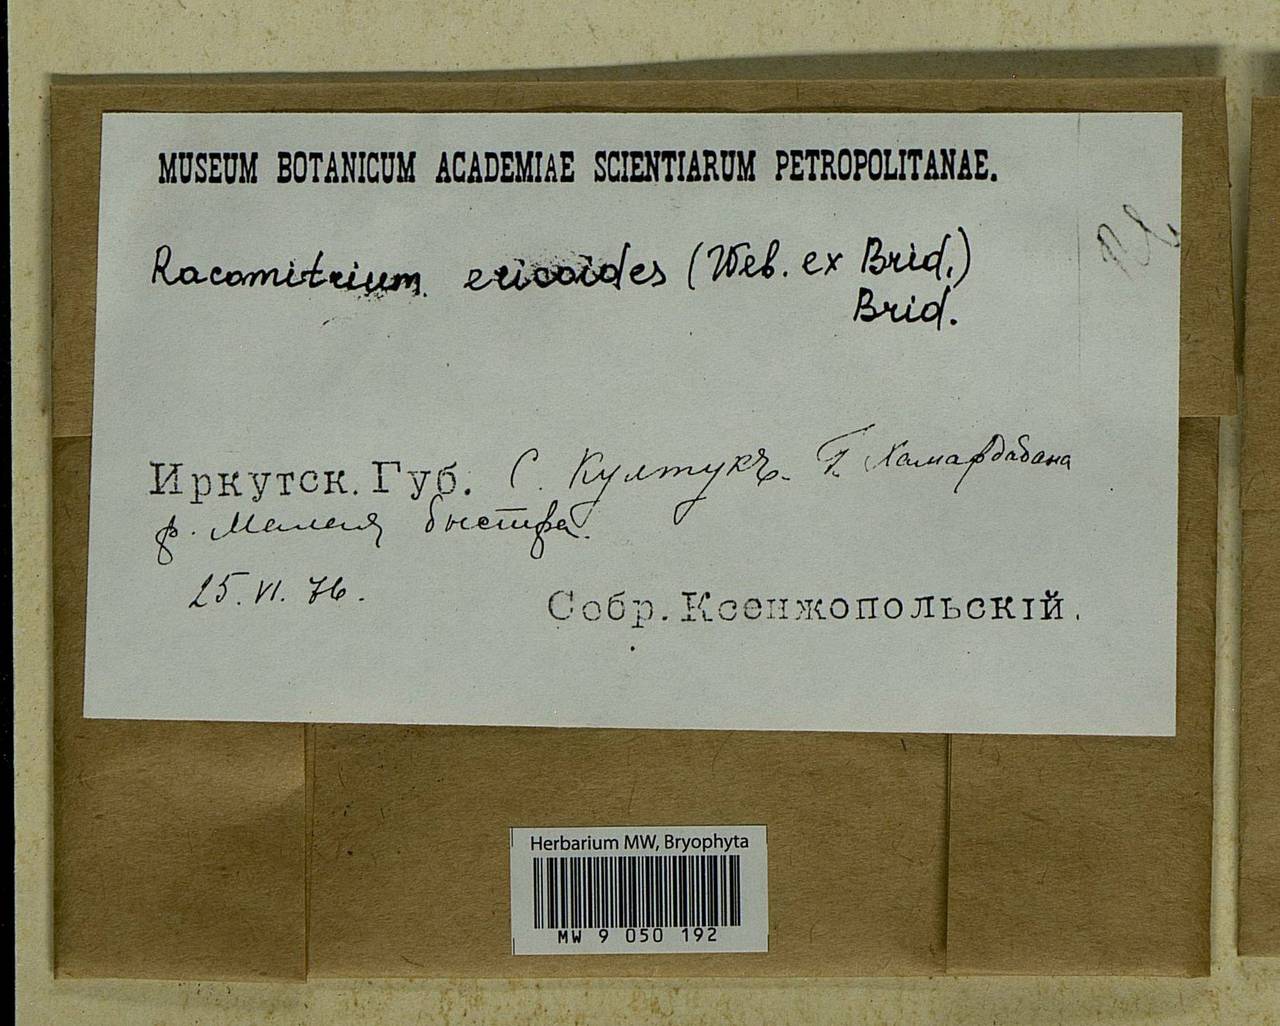 MUSEUM BOTANICUM ACADEMIAE SCIENTIARUM PETROPOLITANAE.
Racomitrium ericoides (Web. ex Brid.)
Brid.
Иркутск. Губ. С. Култукъ. Г. Хамар Дабана
р. Малая быстрая.
25. VI. 76.
Собр. Ксенжопольскій.
Herbarium MW, Bryophyta
MW 9 050 192